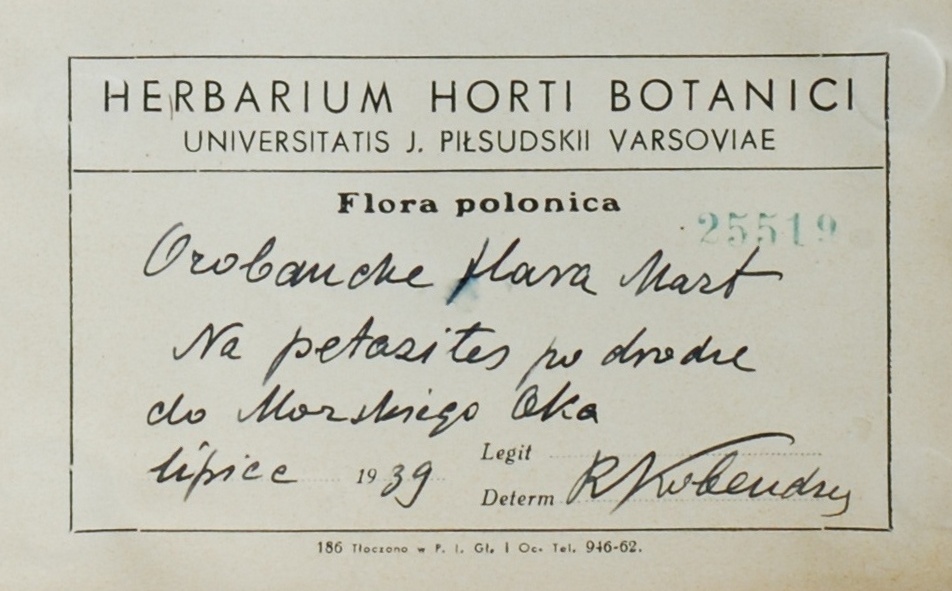 HERBARIUM HORTI BOTANICI
UNIVERSITATIS J. PIŁSUDSKII VARSOVIAE
Flora polonica
25519
Orobanche flava Mart
Na petasites po drodze
do Morskiego Oka
lipiec 1939
Legit
Determ R Kobendzy
186 Tłoczono w P. I. Gł. i Oc. Tel. 946-62.